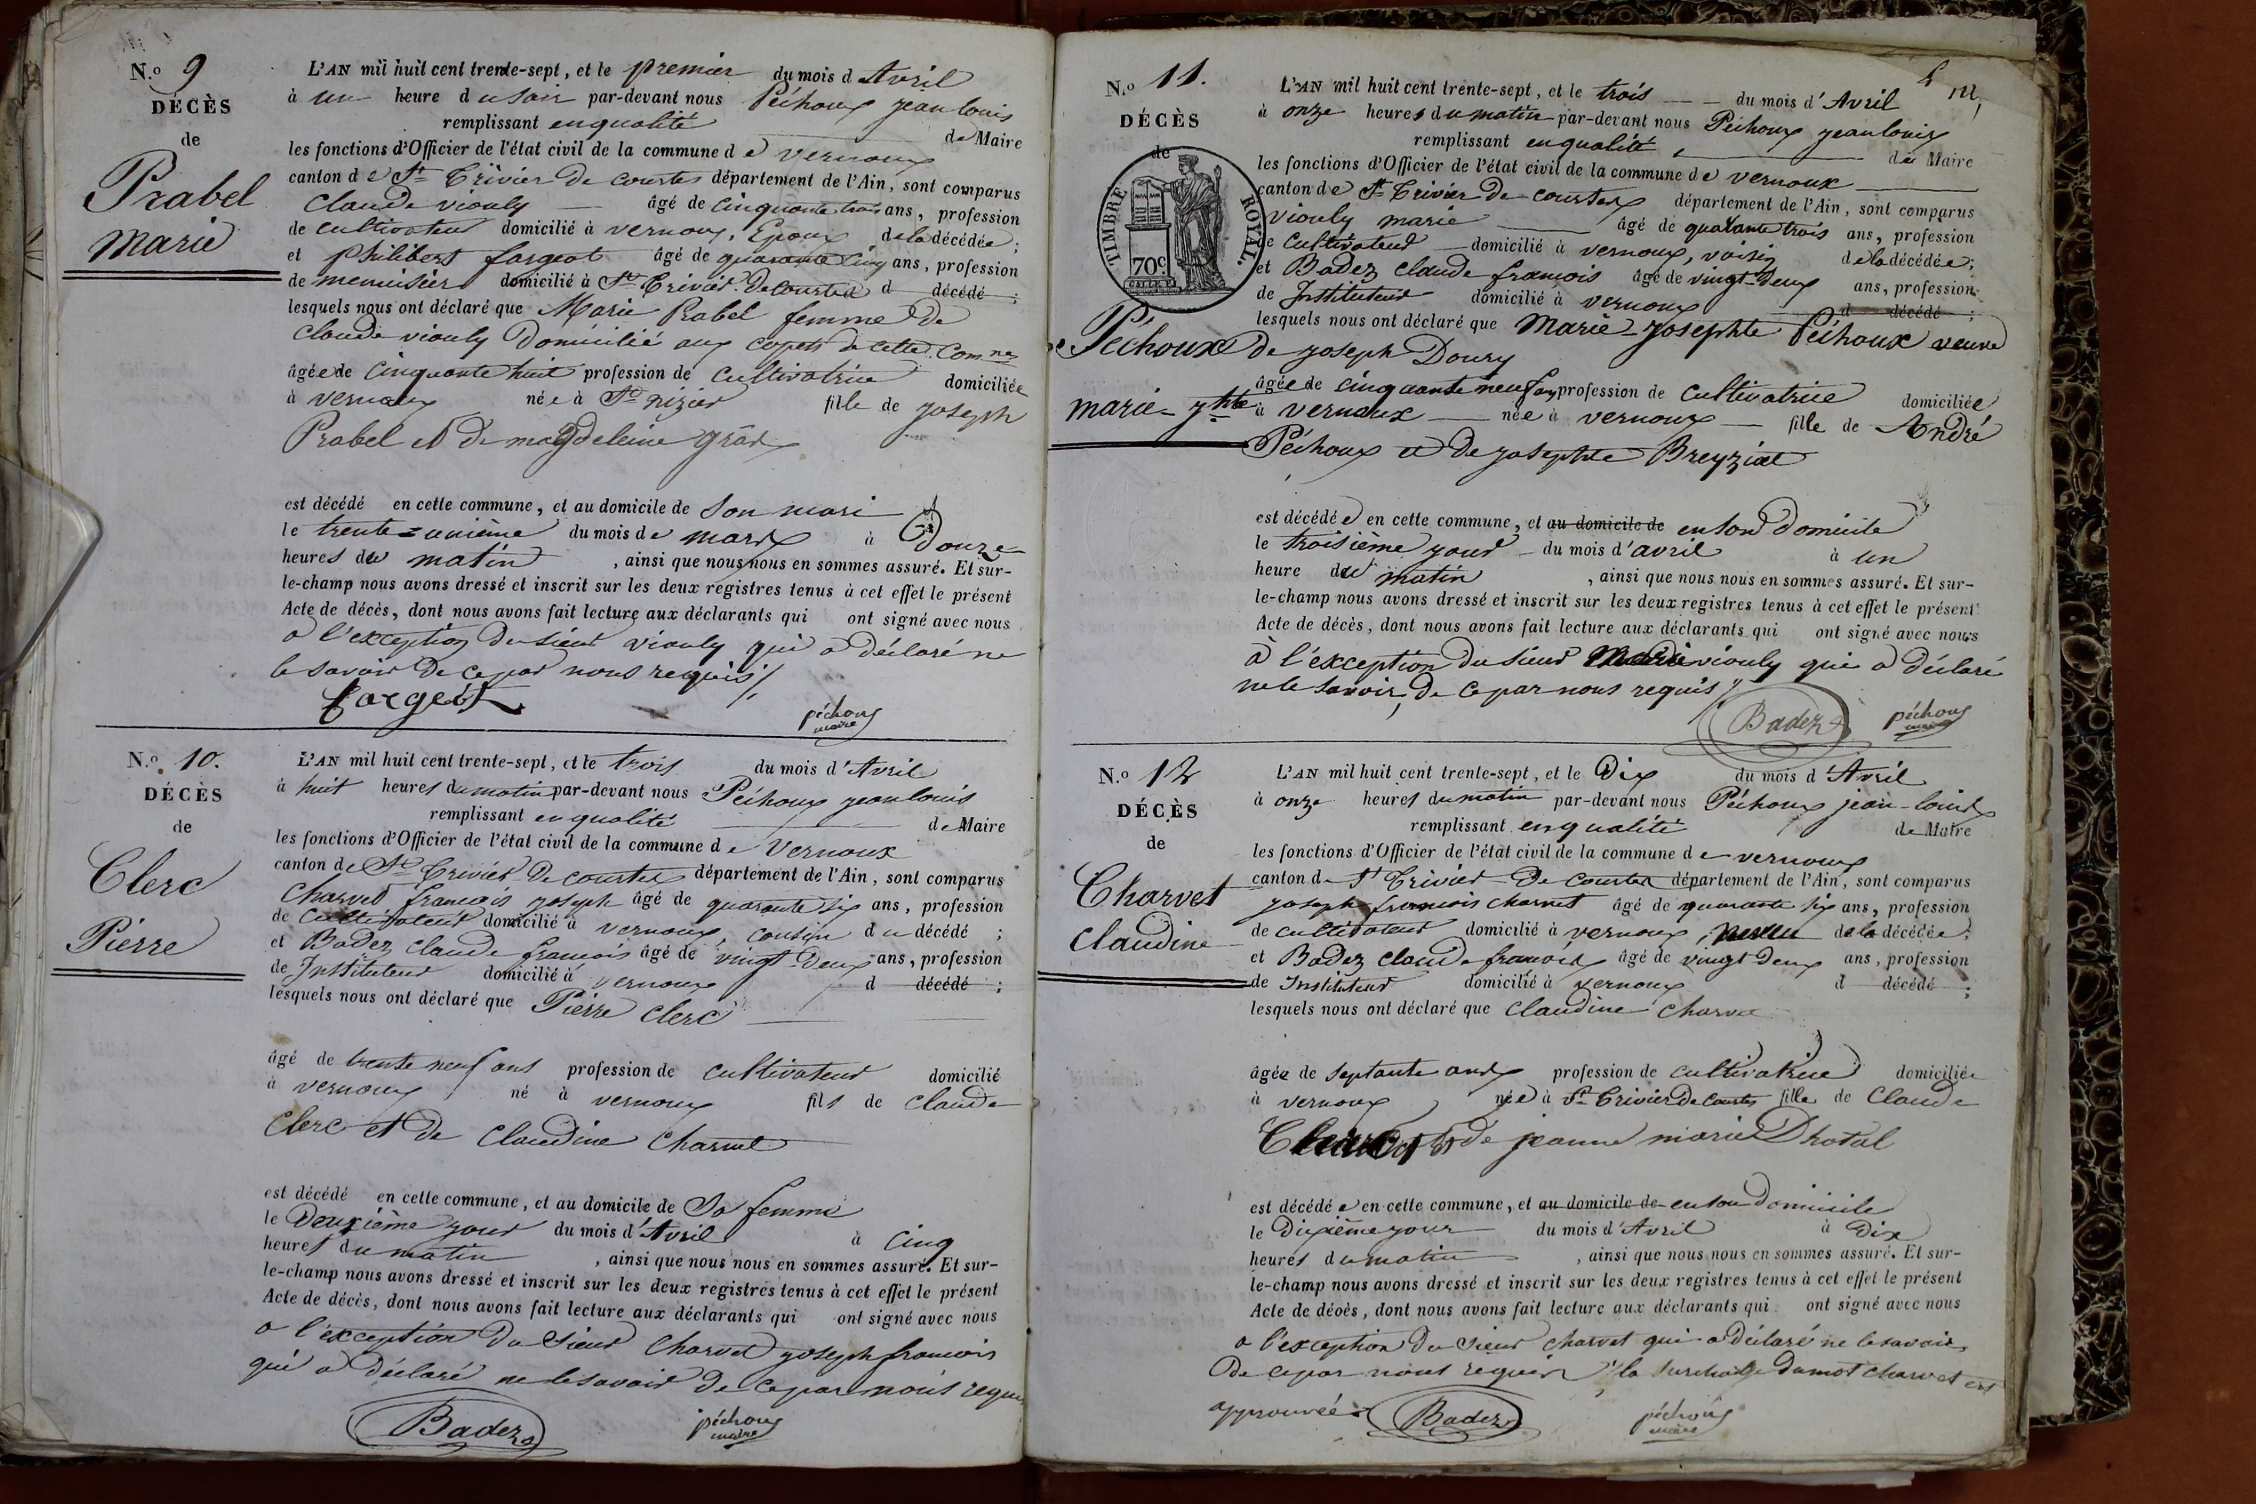 N.o 9
DÉCÈS
de
Prabel
Marie
L'AN mil huit cent trente-sept, et le premier du mois d'Avril
à un heure du soir par-devant nous Péchoux jean louis
remplissant en qualité de Maire
les fonctions d'Officier de l'état civil de la commune de vernoux
canton de St Trivier De courtes département de l'Ain, sont comparus
Claude viouly âgé de cinquante trois ans, profession
de cultivateur domicilié à vernoux, Epoux de la décédée;
et philibert fargeot âgé de quarante cinq ans, profession
de menuisier domicilié à St Trivier De Courtes d décédé ;
lesquels nous ont déclaré que Marie Prabel femme De
Claude viouly Domicilié aux copets de cette Comne
âgée de cinquante huit profession de cultivatrice domiciliée
à vernoux née à St nizier fille de joseph
Prabel et De magdeleine gras
est décédé en cette commune, et au domicile de son mari
le trente-unième du mois de mars à Douze
heures du matin , ainsi que nous nous en sommes assuré. Et sur-
le-champ nous avons dressé et inscrit sur les deux registres tenus à cet effet le présent
Acte de décès, dont nous avons fait lecture aux déclarants qui ont signé avec nous
a l'exception Du sieur viouly qui a déclaré ne
le savoir De ce par nous requis /,
fargeot péchoux
maire
N.o 10.
DÉCÈS
de
Clerc
Pierre
L'AN mil huit cent trente-sept, et le trois du mois d'Avril
à huit heures du matin par-devant nous Péchoux jean louis
remplissant en qualité de Maire
les fonctions d'Officier de l'état civil de la commune de vernoux
canton de St Trivier De courtes département de l'Ain, sont comparus
Charvet françois joseph âgé de quarante six ans, profession
de Cultivateur domicilié à vernoux, cousin du décédé ;
et Badez claude françois âgé de vingt-Deux ans, profession
de Instituteur domicilié à vernoux d décédé ;
lesquels nous ont déclaré que Pierre Clerc
âgé de trente neuf ans profession de cultivateur domicilié
à vernoux né à vernoux fils de claude
Clerc et de Claudine Charvet
est décédé en cette commune, et au domicile de Sa femme
le Deuxième jour du mois d'Avril à cinq
heures du matin , ainsi que nous nous en sommes assuré. Et sur-
le-champ nous avons dressé et inscrit sur les deux registres tenus à cet effet le présent
Acte de décès, dont nous avons fait lecture aux déclarants qui ont signé avec nous
a l'exception Du Sieur Charvet joseph françois
qui a Déclaré ne le savoir De ce par nous requis
Badez péchoux
maire
N.o 11.
DÉCÈS
de
TIMBRE ROYAL.
70c
Péchoux
marie-jphte
L'AN mil huit cent trente-sept, et le trois du mois d'Avril
à onze heures du matin par-devant nous Péchoux jean louis
remplissant en qualité de Maire
les fonctions d'Officier de l'état civil de la commune de vernoux
canton de St Trivier De courtes département de l'Ain, sont comparus
viouly marie âgé de quarante trois ans, profession
de Cultivateur domicilié à vernoux, voisin de la décédée;
et Badez claude françois âgé de vingt-Deux ans, profession
de Instituteur domicilié à vernoux d décédé ;
lesquels nous ont déclaré que Marie-josephte Péchoux veuve
De joseph Doury
âgée de cinquante neuf ans profession de cultivatrice domiciliée
à vernoux née à vernoux fille de André
Péchoux et De josephte Breyziat
est décédée en cette commune, et au domicile de en son Domicile
le troisième jour du mois d'avril à un
heure du matin , ainsi que nous nous en sommes assuré. Et sur-
le-champ nous avons dressé et inscrit sur les deux registres tenus à cet effet le présent
Acte de décès, dont nous avons fait lecture aux déclarants qui ont signé avec nous
à l'exception Du sieur viouly qui a déclaré
ne le savoir, De ce par nous requis
Badez péchoux
maire
N.o 12
DÉCÈS
de
Charvet
claudine
L'AN mil huit cent trente-sept, et le Dix du mois d'Avril
à onze heures du matin par-devant nous Péchoux jean-louis
remplissant en qualité de Maire
les fonctions d'Officier de l'état civil de la commune de vernoux
canton de St Trivier De courtes département de l'Ain, sont comparus
joseph françois charvet âgé de quarante six ans, profession
de cultivateur domicilié à vernoux, neveu de la décédée;
et Badez claude françois âgé de vingt Deux ans, profession
de Instituteur domicilié à vernoux d décédé ;
lesquels nous ont déclaré que Claudine Charvet
âgée de septante ans profession de cultivatrice domiciliée
à vernoux née à St Trivier De Courtes fille de Claude
Charvet et De jeanne marie Dhotal
est décédée en cette commune, et au domicile de en son Domicile
le Dixième jour du mois d'Avril à Dix
heures du matin , ainsi que nous nous en sommes assuré. Et sur-
le-champ nous avons dressé et inscrit sur les deux registres tenus à cet effet le présent
Acte de décès, dont nous avons fait lecture aux déclarants qui ont signé avec nous
a l'exception Du Sieur Charvet qui a Déclaré ne le savoir
De ce par nous requis la surcharge du mot charvet est
approuvée. Badez péchoux
maire